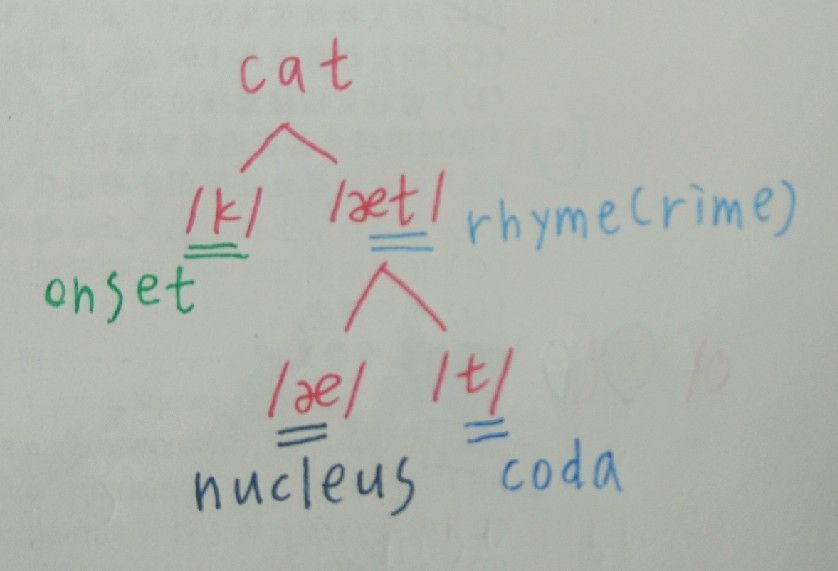 cat
/k/ /æt/ rhyme(rime)
onset
/æ/ /t/
nucleus coda